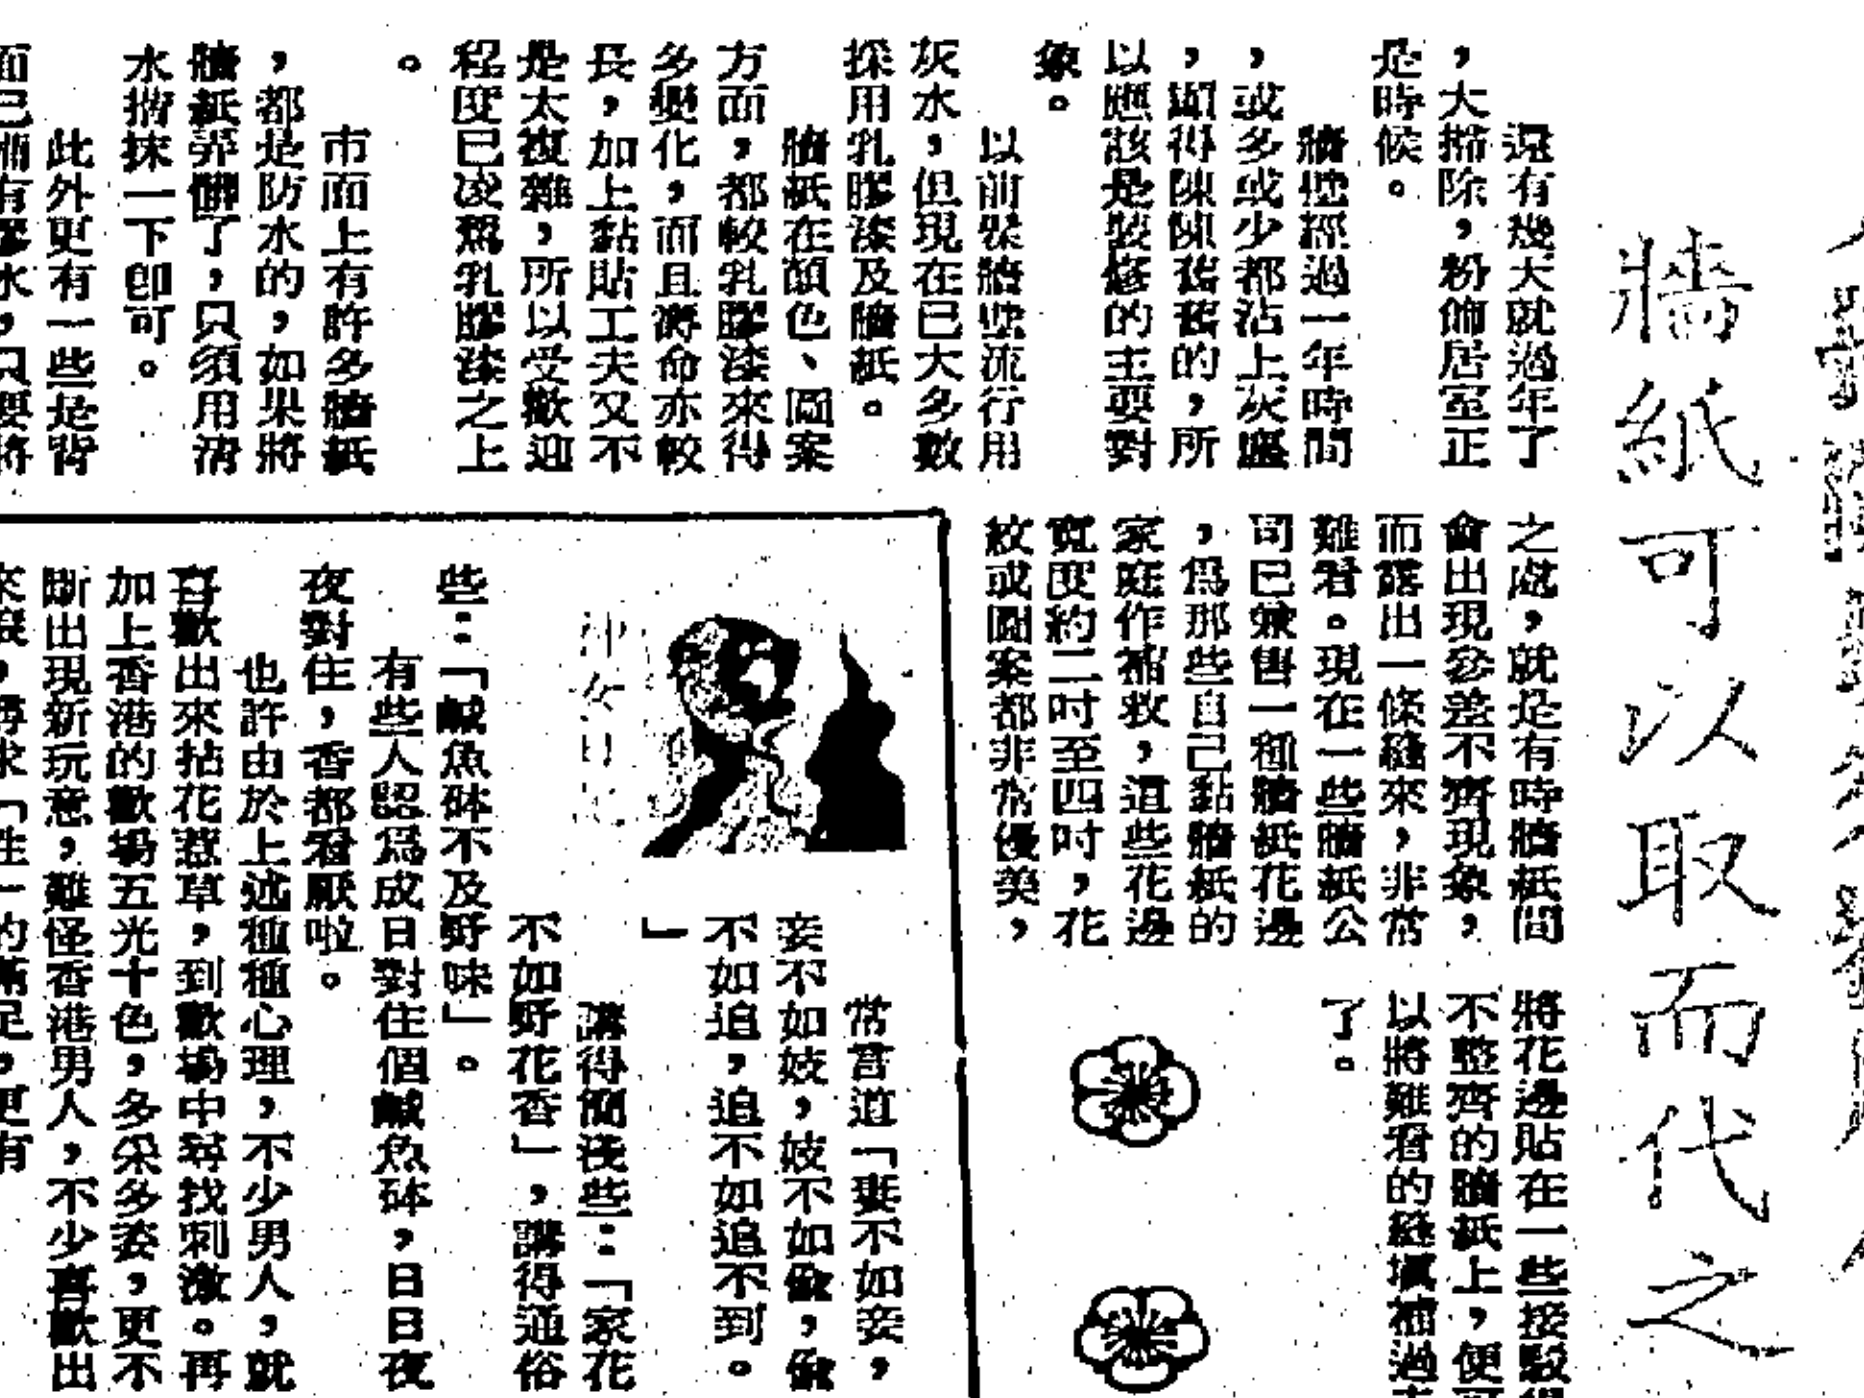 牆紙可以取而代之
還有幾天就過年了
，大掃除，粉飾居室正
是時候。
牆壁經過一年時間
，或多或少都沾上灰塵
，顯得陳陳舊舊的，所
以應該是裝修的主要對
象。
以前髹牆壁流行用
灰水，但現在已大多數
採用乳膠漆及牆紙。
牆紙在顏色、圖案
方面，都較乳膠漆來得
多變化，而且壽命亦較
長，加上黏貼工夫又不
是太複雜，所以受歡迎
程度已凌駕乳膠漆之上
。
市面上有許多牆紙
，都是防水的，如果將
牆紙弄髒了，只須用清
水揩抹一下即可。
此外更有一些是背
面已補有膠水，只要將
之處，就是有時牆紙間
會出現參差不齊現象，
而露出一條縫來，非常
難看。現在一些牆紙公
司已兼售一種牆紙花邊
，爲那些自己黏牆紙的
家庭作補救，這些花邊
寬度約二吋至四吋，花
紋或圖案都非常優美，
將花邊貼在一些接駁得
不整齊的牆紙上，便可
以將難看的縫塡補過去
了。
常言道「妻不如妾，
妾不如妓，妓不如偷，偷
不如追，追不如追不到。
」
講得簡淺些：「家花
不如野花香」，講得通俗
些：「鹹魚砵不及野味」。
有些人認爲成日對住個鹹魚砵，日日夜
夜對住，香都看厭啦。
也許由於上述種種心理，不少男人，就
喜歡出來拈花惹草，到歡場中尋找刺激。再
加上香港的歡場五光十色，多采多姿，更不
斷出現新玩意，難怪香港男人，不少喜歡出
來滾，尋求「性」的滿足，更有